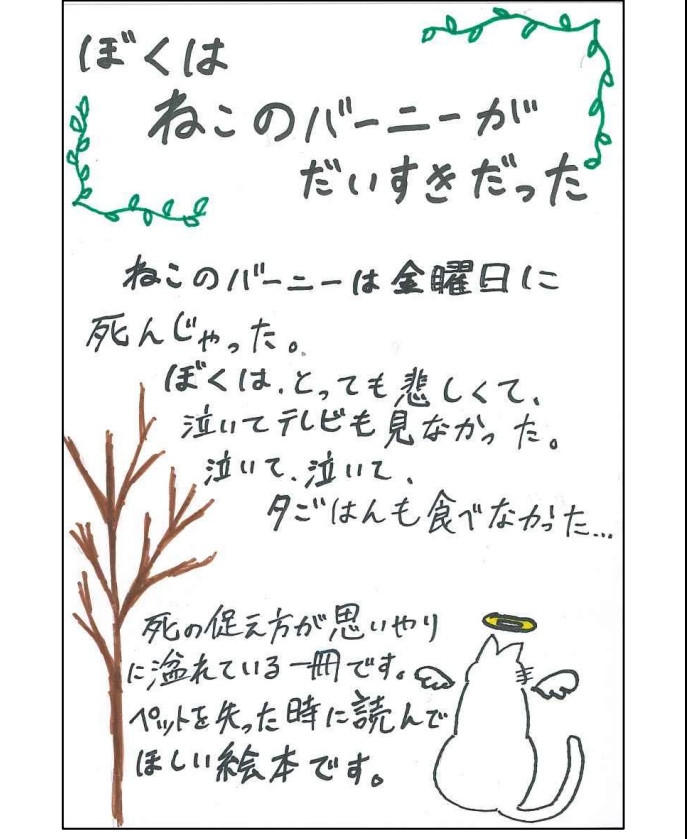 ぼくは
ねこのバーニーが
だいすきだった
ねこのバーニーは金曜日に
死んじゃった。
ぼくは、とっても悲しくて、
泣いてテレビも見なかった。
泣いて、泣いて、
夕ごはんも食べなかった…
死の促え方が思いやり
に溢れている一冊です。
ペットを失った時に読んで
ほしい絵本です。